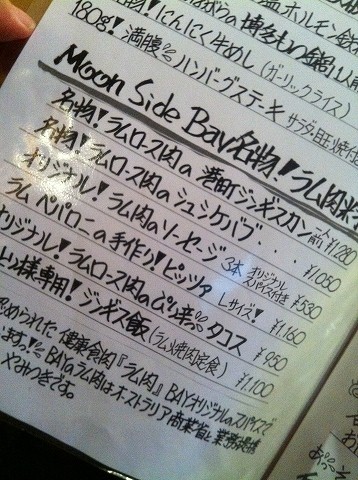 塩ホルモン鉄
博多もつ鍋
名物!にんにく牛めし(ガーリックライス)
180g!満腹ハンバーグステーキ サラダ、目玉焼付
Moon Side Bay名物!ラム肉料
名物!ラムロース肉の港町ジンギスカン 一人前 ¥1280
名物!ラムロース肉のシュシケバブ・・・ ¥1,050
オリジナル!ラム肉のソーセージ 3本 オリジナルスパイス付き ¥530
ラムペパロニの手作りピッツァ Lサイズ! ¥1,160
オリジナル!ラムロース肉のぴり辛タコス ¥950
様専用!ジンギス飯(ラム焼肉定食) ¥1,100
認められた健康食肉『ラム肉』BAYオリジナルのスパイスで
います。BAYのラム肉はオーストラリア商業省と業務提携
やみつきです。